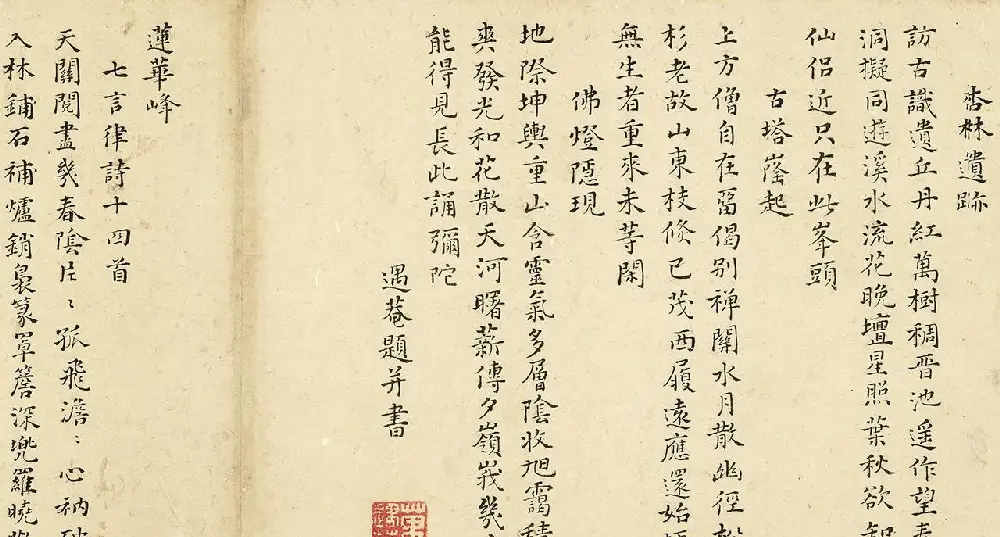 杏林遺跡
訪古識遺丘丹紅萬樹稠晋池遥作望
洞擬同遊溪水流花晚壇星照葉秋欲知
仙侶近只在此峯頭
古塔窿起
上方僧自在留偈别禅關水月散幽徑松
杉老故山東枝倏已茂西履遠應還始
無生者重來未等閑
佛燈隱現
地際坤輿重山含靈氣多層陰收旭靄
爽發光和花散天河曙薪傳夕嶺峩幾
能得見長此誦彌陀
遇菴題并書
蓮華峰
七言律詩十四首
天關閱盡幾春陰片〻孤飛澹〻心衲
入林鋪石補爐銷裊篆罩簷深兜羅曉